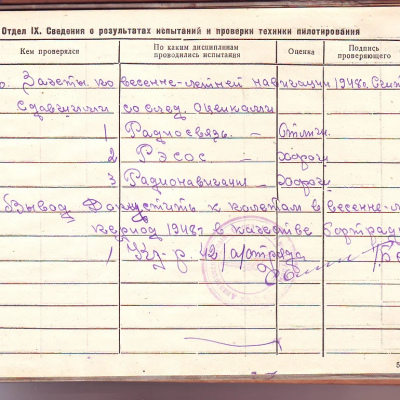 Отдел IX. Сведения о результатах испытаний и проверки техники пилотирования
Кем проверялся По каким дисциплинам проводились испытания Оценка Подпись проверяющего
Зачеты по весенне-летней навигации 1948г.
со след. оценками
1 Радиосвязь. — Отличн.
2 РЭСОС. — Хорош
3 Радионавигации — Хорош
Вывод Допустить к полетам в весенне-
период 1948г в качестве бортради
К-р. 42 а/отряда
5